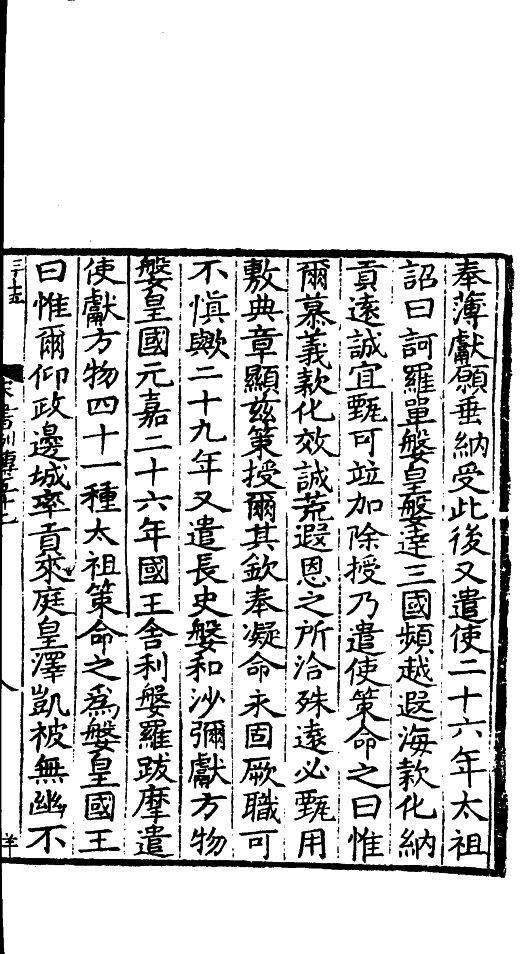 奉薄獻願垂納受此後又遣使二十六年太祖
詔曰訶羅單媻皇媻達三國頻越遐海款化納
貢遠誠宜甄可竝加除授乃遣使策命之曰惟
爾慕義款化效誠荒遐恩之所洽殊遠必甄用
敷典章顯茲策授爾其欽奉凝命永固厥職可
不慎歟二十九年又遣長史媻和沙彌獻方物
媻皇國元嘉二十六年國王舍利媻羅跋摩遣
使獻方物四十一種太祖策命之爲媻皇國王
曰惟爾仰政邊城率貢來庭皇澤凱被無幽不
宋書列傳五十七
八